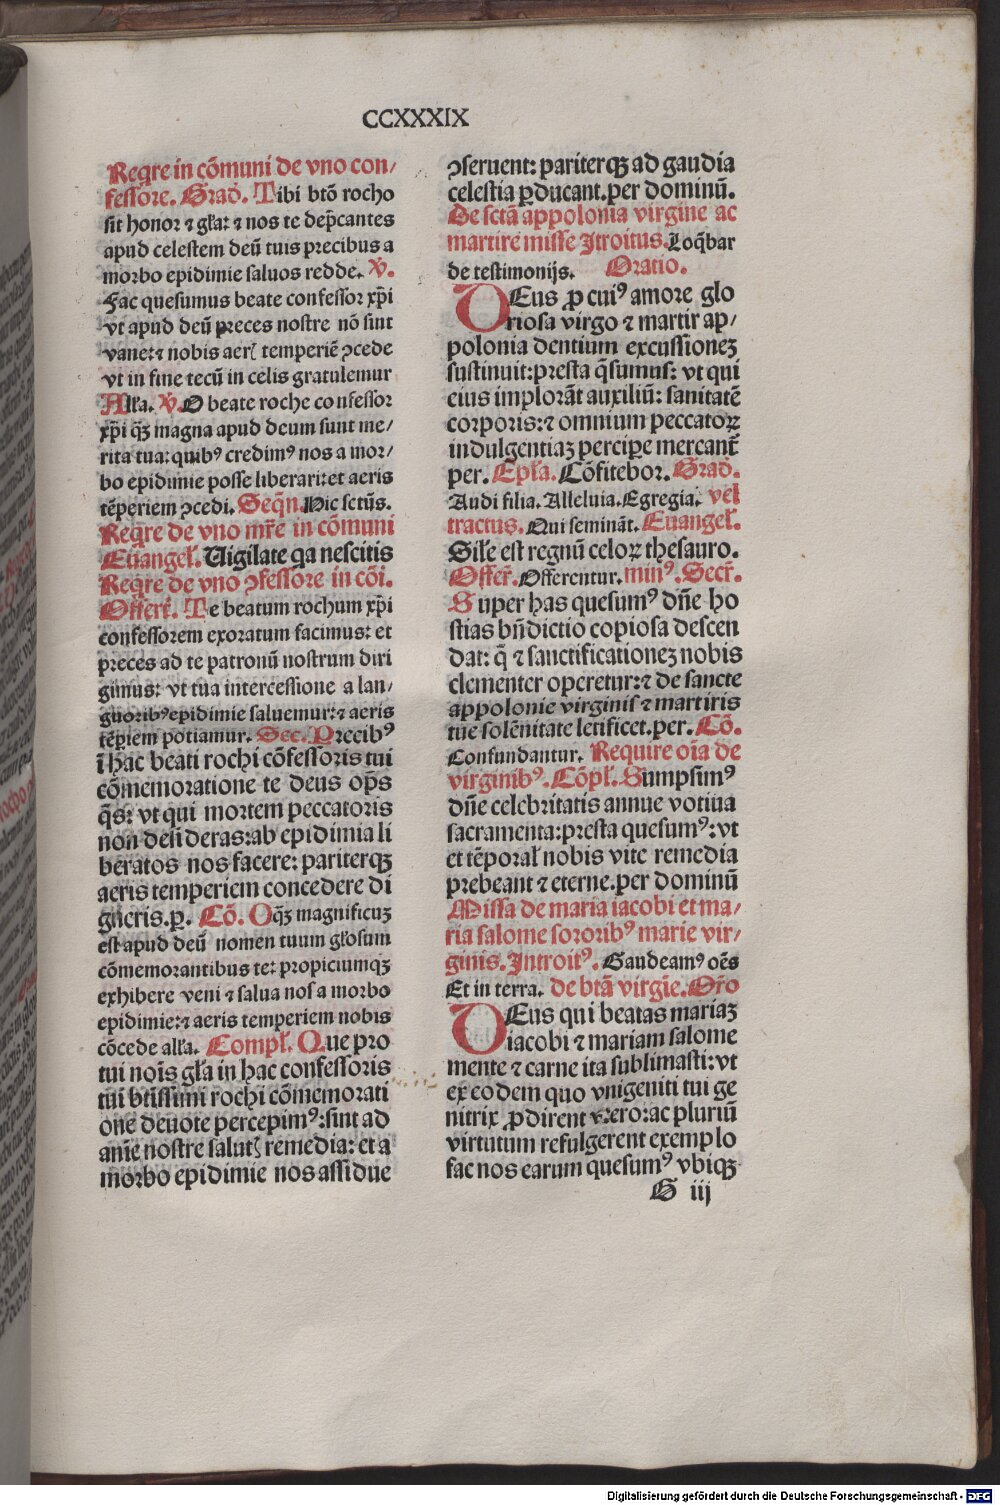 CCXXXIX
Reqre in cōmuni de vno con/
fessore. Grad̄. Tibi btō rocho
sit honor ⁊ gl̄a: ⁊ nos te dep̄cantes
apud celestem deū tuis precibus a
morbo epidimie saluos redde. v̄.
Fac quesumus beate confessor xp̄i
vt apud deū preces nostre nō sint
vane: ⁊ nobis aerꝭ temperiē ꝯcede
vt in fine tecū in celis gratulemur
Alla. v̄. O beate roche confessor
xp̄i qꝫ magna apud deum sunt me/
rita tua: quibꝰ credimꝰ nos a mor/
bo epidimie posse liberari: et aeris
tēperiem ꝯcedi. Seqn̄. Hic sctūs.
Reqre de vno mr̄e in cōmuni
Euangel̄. Uigilate qa nescitis
Reqre de vno ꝯfessore in cōi.
Offert̄. Te beatum rochum xp̄i
confessorem exoratum facimus: et
preces ad te patronū nostrum diri
gimus: vt tua intercessione a lan/
guoribꝰ epidimie saluemur: ⁊ aeris
tēꝑiem potiamur. Sec. Precibꝰ
ī hac beati rochi cōfessoris tui
cōmemoratione te deus oꝑs
q̄s: vt qui mortem peccatoris
non desideras: ab epidimia li
beratos nos facere: pariterqꝫ
aeris temperiem concedere di
gneris. ꝑ. Cō. O qꝫ magnificuꝫ
est apud deū nomen tuum gl̄osum
cōmemorantibus te: propiciumqꝫ
exhibere veni ⁊ salua nos a morbo
epidimie: ⁊ aeris temperiem nobis
cōcede alla. Compl̄. Que pro
tui nōis gl̄a in hac confessoris
tui btissimi rochi cōmemorati
one deuote percepimꝰ: sint ad
anīe nostre salutꝭ remedia: et a
morbo epidimie nos assidue
ꝯseruent: pariterqꝫ ad gaudia
celestia ꝑducant. per dominū.
De sctā appolonia virgine ac
martire misse Jtroitus. Loq̄bar
de testimonijs. Oratio.
DEus ꝓ cuiꝰ amore glo
riosa virgo ⁊ martir ap/
polonia dentium excussioneꝫ
sustinuit: presta q̄sumus: vt qui
eius implorāt auxiliū: sanitatē
corporis: ⁊ omnium peccatoꝝ
indulgentiaꝫ perciꝑe mereant̄
per. Epl̄a. Cōfitebor. Grad̄.
Audi filia. Alleluia. Egregia. vel
tractus. Qui semināt. Euangel̄.
Sil̄e est regnū celoꝝ thesauro.
Offer̄. Offerentur. minꝰ. Secr̄.
Super has quesumꝰ dn̄e ho
stias bn̄dictio copiosa descen
dat: q̄ ⁊ sanctificationeꝫ nobis
clementer operetur: ⁊ de sancte
appolonie virginis ⁊ martiris
tue solēnitate letificet. per. Cō.
Confundantur. Require oīa de
virginibꝰ. Cōpl̄. Sumpsimꝰ
dn̄e celebritatis annue votiua
sacramenta: presta quesumꝰ: vt
et tēporal̄ nobis vite remedia
prebeant ⁊ eterne. per dominū
Missa de maria iacobi et ma/
ria salome sororibꝰ marie vir/
ginis. Jntroitꝰ. Gaudeamꝰ oēs
Et in terra. de btā virgīe. Or̄o
DEus qui beatas mariaꝫ
iacobi ⁊ mariam salome
mente ⁊ carne ita sublimasti: vt
ex eodem quo vnigeniti tui ge
nitrix ꝓdirent vtero: ac pluriū
virtutum refulgerent exemplo
fac nos earum quesumꝰ vbiqꝫ
G iij
Digitalisierung gefördert durch die Deutsche Forschungsgemeinschaft - DFG